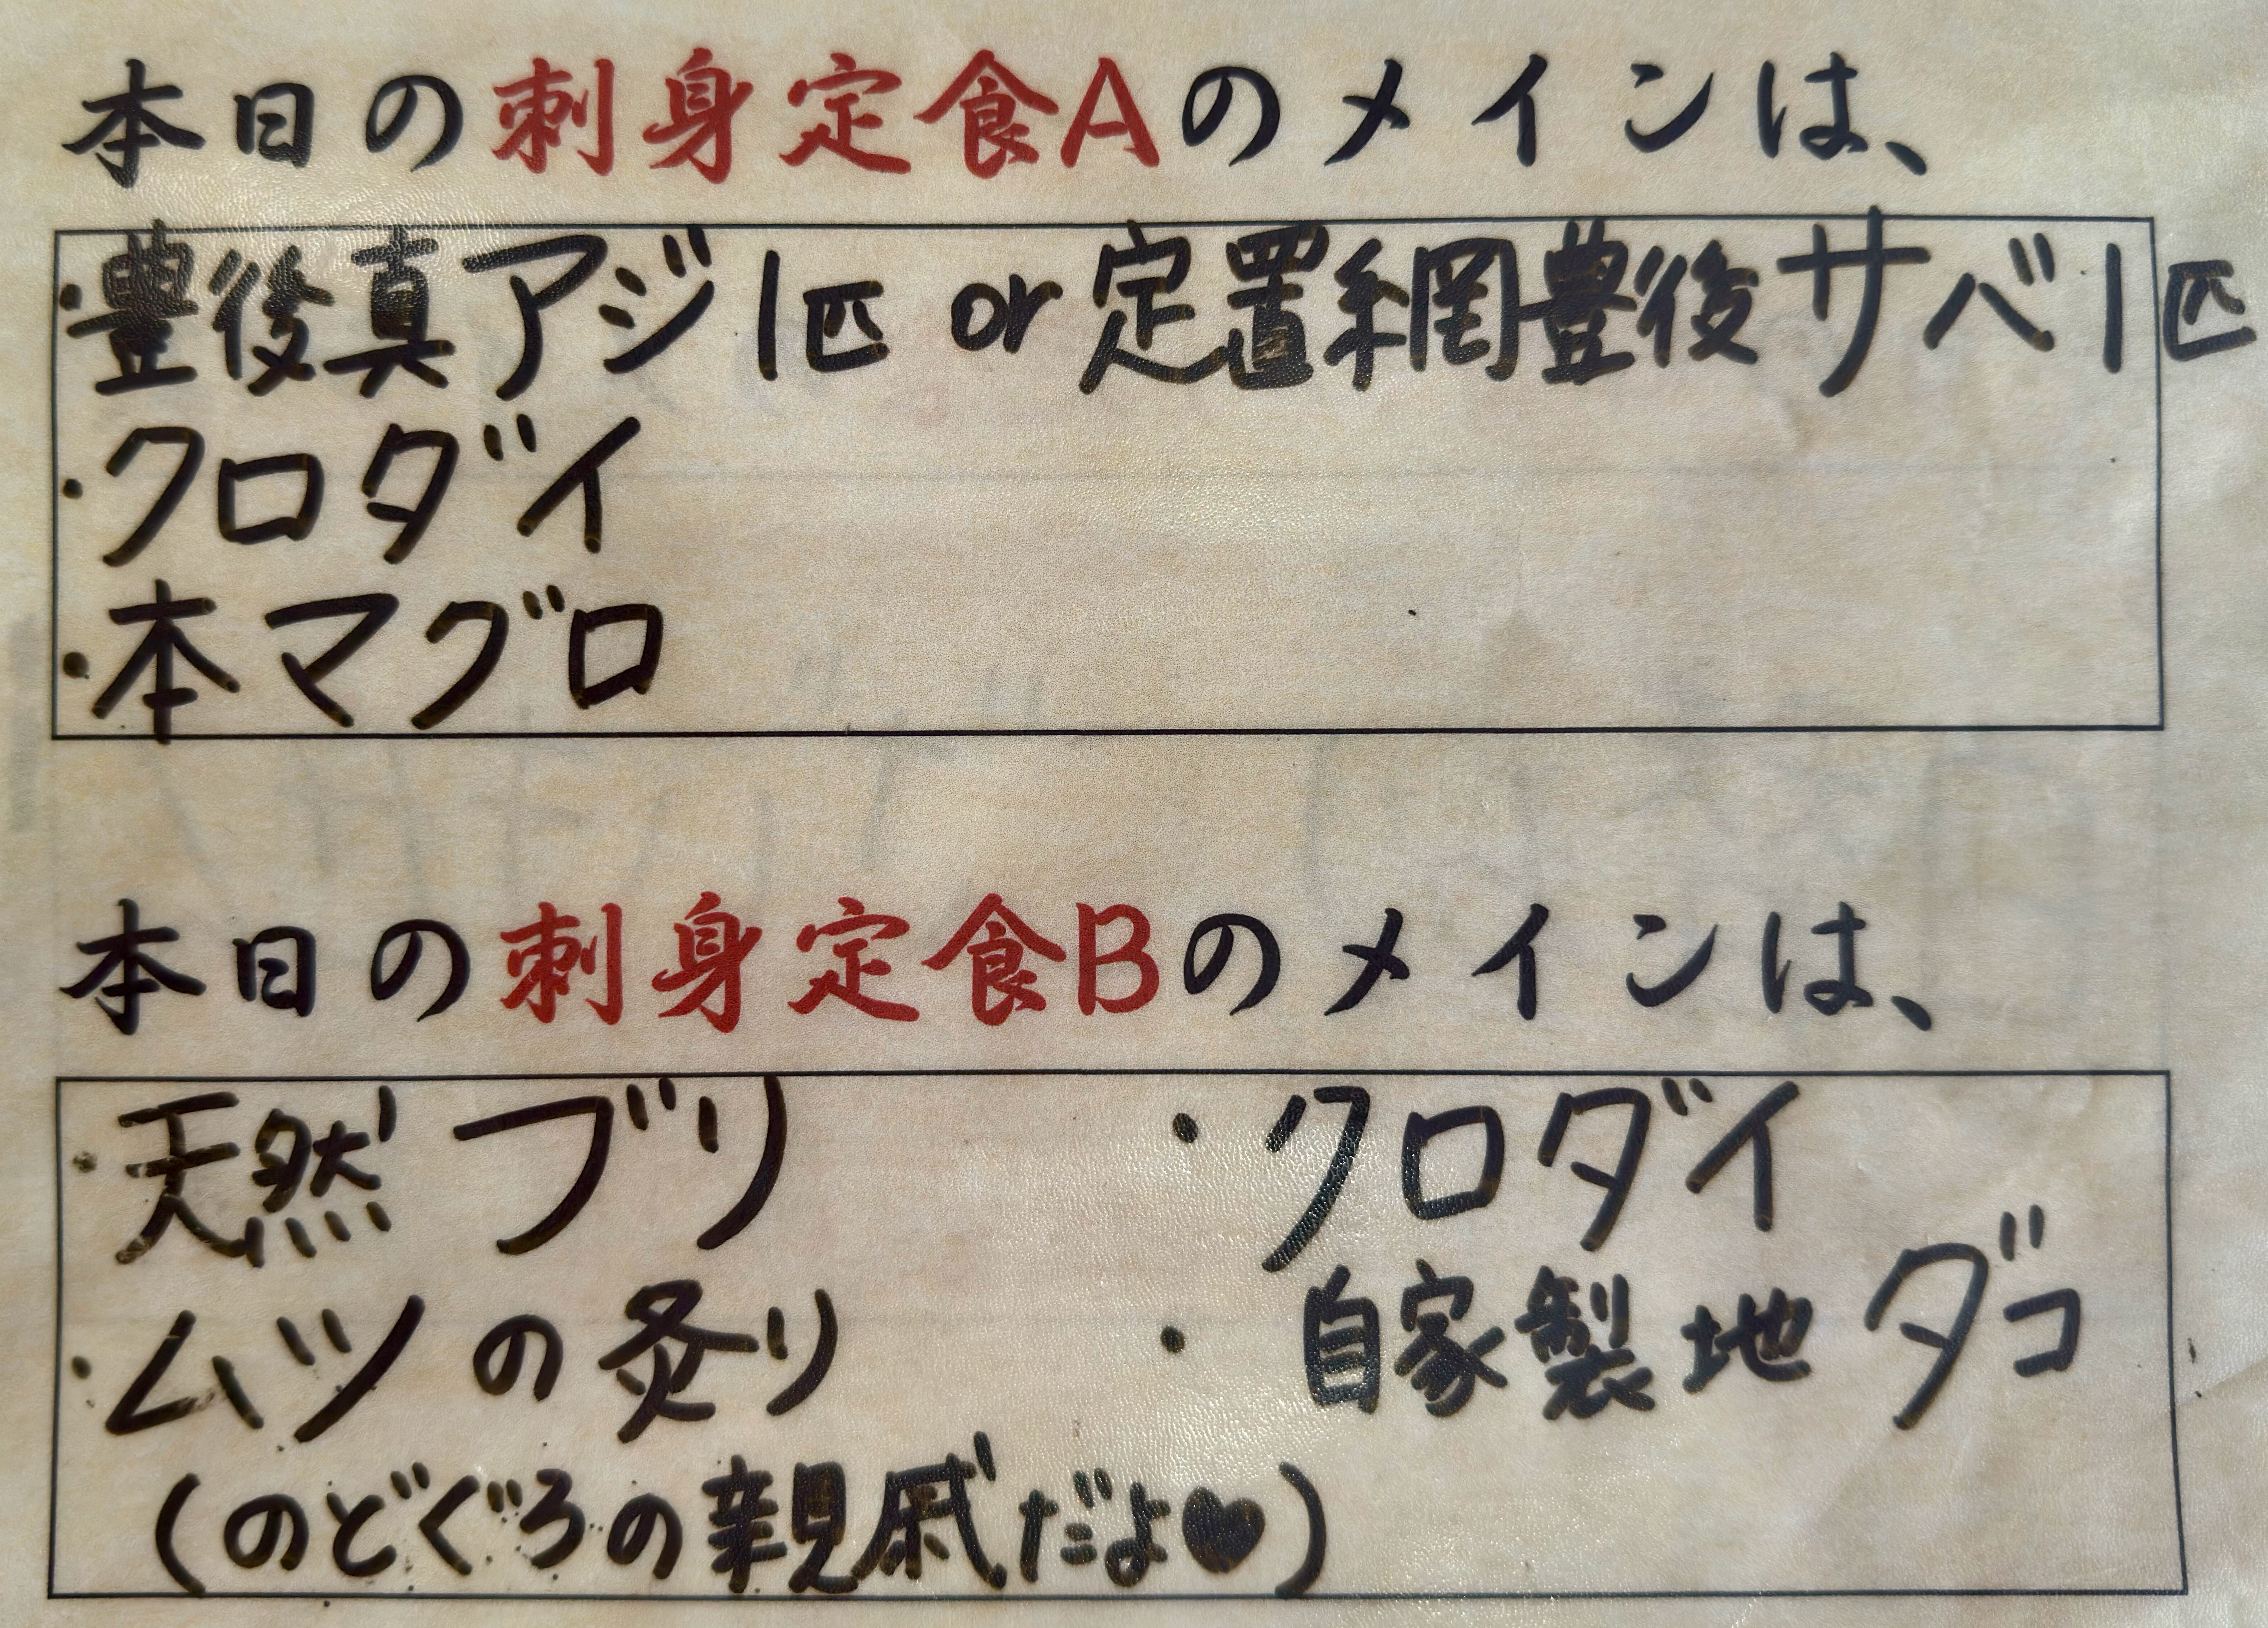 本日の刺身定食Aのメインは、
・豊後真アジ1匹 or 定置網豊後サバ1匹
・クロダイ
・本マグロ
本日の刺身定食Bのメインは、
・天然ブリ ・クロダイ
・ムツの炙り ・自家製地ダコ
(のどぐろの親戚だよ♥)